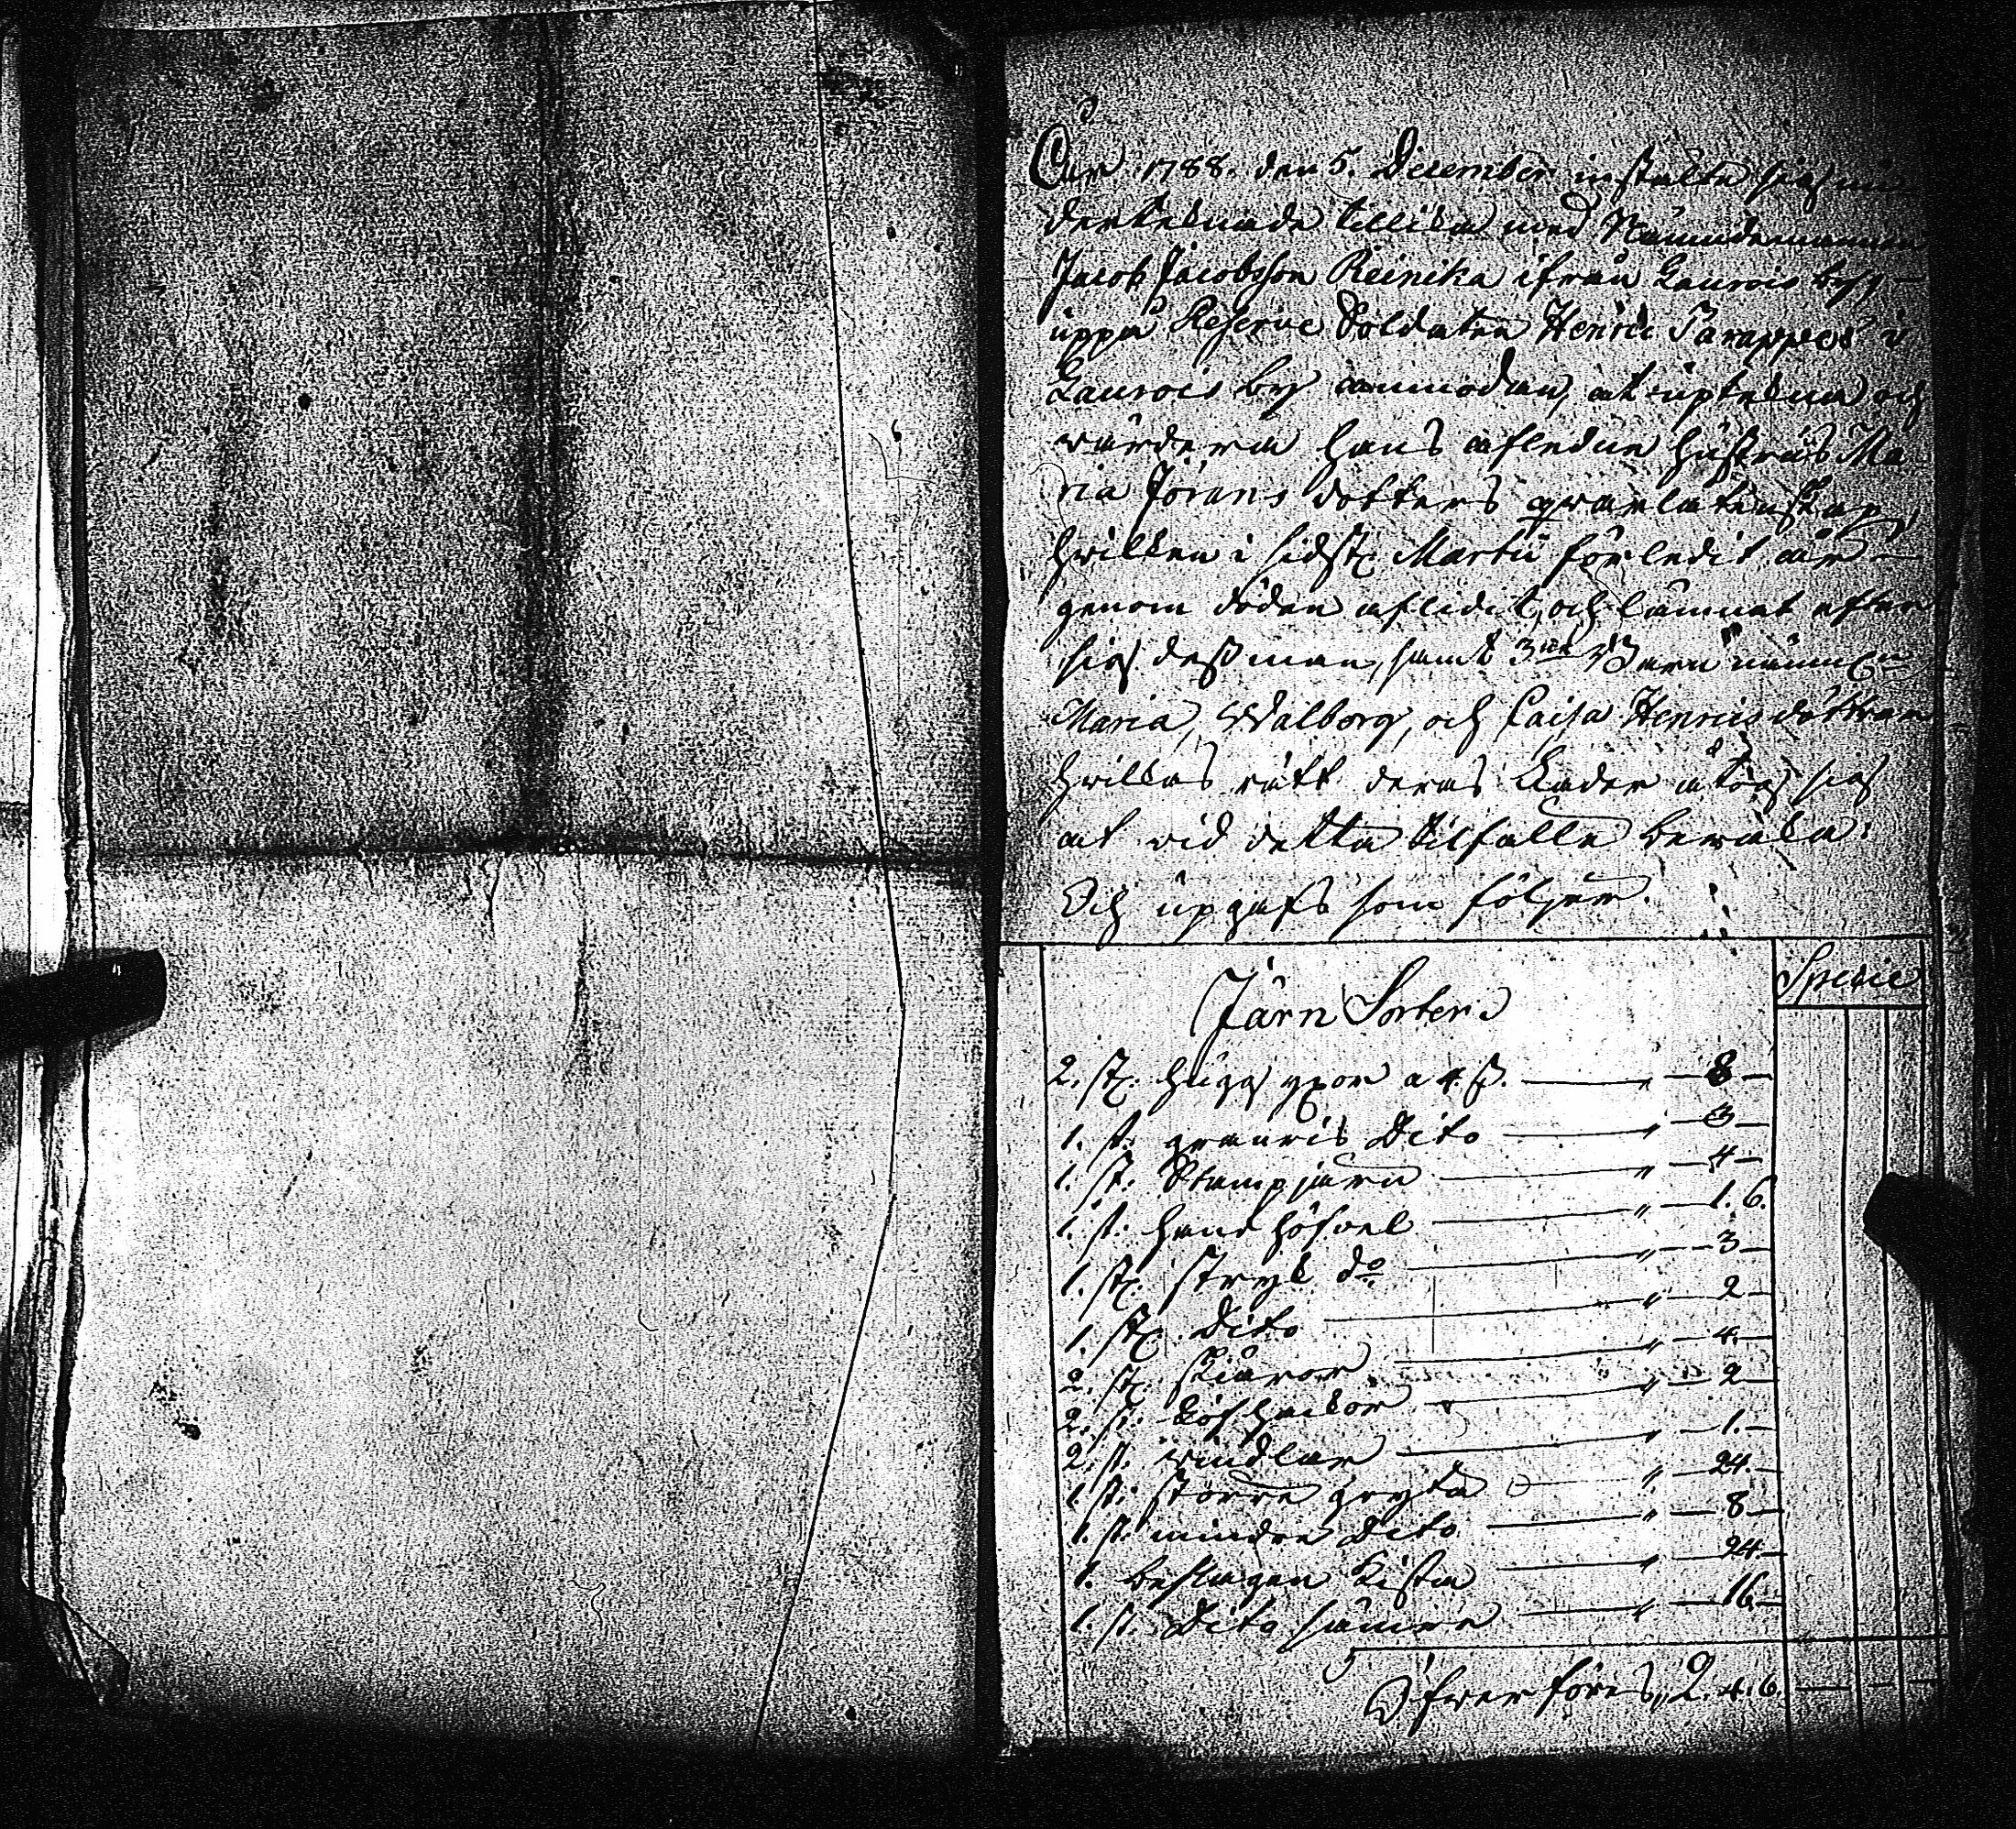 Åhr 1788. den 5. December instälte sig un
derteknade tillika med Nämndemannen
Jacob Jacobsson Reinika ifrån Laurois by
uppå Reserve Soldaten Henric Parappes i
Laurois by anmodan, at uptekna och
wärdera hans afledne hustrus Ma
ria Jörans dotters qwarlåtenskap,
hwilken i sidstl. Martii förledit år
genom döden aflidit, och lämnat efter
sig dess man, samt 3ne Barn nämnl.n
Maria, Walborg, och Caisa Henrics döttrar
hwilkas rätt deras fader åtog sig
at vid detta tilfälle bewaka:
Och upgafs som följer.
Järn Sorter Specie
2. st. hugg yxor a 4 ß. " 8
1. st. granris Dito " 3
1. st. Stampjärn " 4
1. st. hand höfvel " 1. 6.
1. st. stryk do " 3
1. st. Dito " 2
2. st. skiäror " 4.
2. st. löfhackor " 2
2. st. windlar " 1.
1. st. större gryta " 24.
1. st. mindre Dito " 8
1. beslagen kista " 24
1. st. Dito sämre " 16
Öfwerföres " 2. 4. 6.